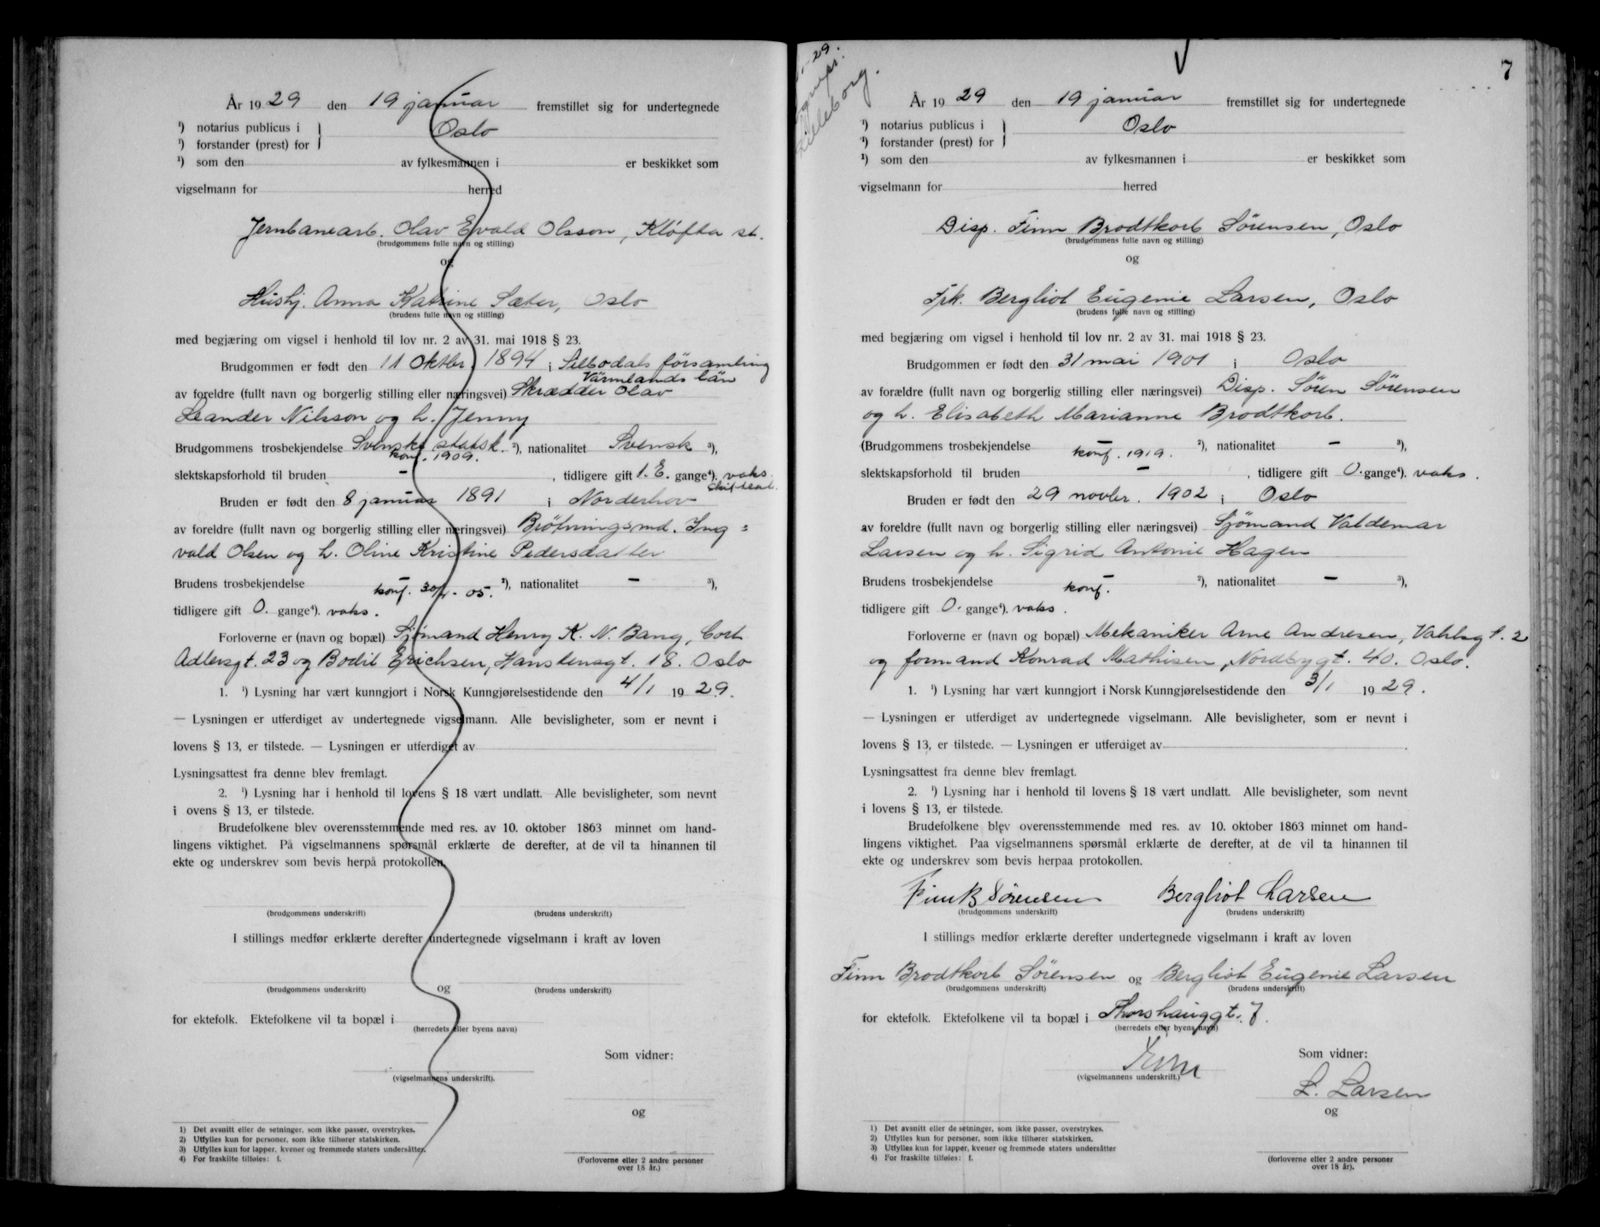 År 1929 den 19 januar fremstillet sig for undertegnede
¹) notarius publicus i
Oslo
¹) forstander (prest) for
¹) som den av fylkesmannen i er beskikket som
vigselmann for herred
Jernbanearb. Olav Evald Olsson, Kløfta st.
(brudgommens fulle navn og stilling)
og
Hushj. Anna Katrine Sæter, Oslo
(brudens fulle navn og stilling)
med begjæring om vigsel i henhold til lov nr. 2 av 31. mai 1918 § 23.
Brudgommen er født den 11 oktbr. 1894 i Silbodals församling
Värmlands län
av foreldre (fullt navn og borgerlig stilling eller næringsvei) Skrædder Olav
Leander Nilsson og h. Jenny
Brudgommens trosbekjendelse Svenske statsk. ²), nationalitet Svensk ³),
konf. 1909.
slektskapsforhold til bruden - , tidligere gift 1. E. gange⁴). vaks.
Bruden er født den 8 januar 1891 i Norderhov
av foreldre (fullt navn og borgerlig stilling eller næringsvei) Brøtningsmd. Ing=
vald Olsen og h. Oline Kristine Pedersdatter
Brudens trosbekjendelse - ²), nationalitet - ³),
konf. 05.
tidligere gift 0. gange⁴). vaks.
Forloverne er (navn og bopæl) Sjømand Henry K. N. Bang, Cort
Adlersgt. 23 og Bodil Erichsen, Hanstensgt. 18. Oslo
1. ¹) Lysning har vært kunngjort i Norsk Kunngjørelsestidende den 4/1 1929.
— Lysningen er utferdiget av undertegnede vigselmann. Alle bevisligheter, som er nevnt i
lovens § 13, er tilstede. — Lysningen er utferdiget av
Lysningsattest fra denne blev fremlagt.
2. ¹) Lysning har i henhold til lovens § 18 vært undlatt. Alle bevisligheter, som nevnt
i ovens § 13, er tilstede.
Brudefolkene blev overensstemmende med res. av 10. oktober 1863 minnet om hand-
lingens viktighet. På vigselmannens spørsmål erklærte de derefter, at de vil ta hinannen til
ekte og underskrev som bevis herpå protokollen.
(brudgommens underskrift) (brudens underskrift)
I stillings medfør erklærte derefter undertegnede vigselmann i kraft av loven
og
(brudgommens underskrift) (brudens underskrift)
for ektefolk. Ektefolkene vil ta bopæl i
(herredets eller byens navn)
Som vidner:
(vigselmannens underskrift).
og
1) Det avsnitt eller de setninger, som ikke passer, overstrykes.
2) Utfylles kun for personer, som ikke tilhører statskirken.
3) Utfylles kun for lapper, kvener og fremmede staters undersåtter.
4) For fraskilte tilføies: f.
(Forloverne eller 2 andre personer
over 18 år.)
29.
Lilleborg.
7
År 1929 den 19 januar fremstillet sig for undertegnede
¹) notarius publicus i
Oslo
¹) forstander (prest) for
¹) som den av fylkesmannen i er beskikket som
vigselmann for herred
Disp. Finn Brodtkorb Sørensen, Oslo
(brudgommens fulle navn og stilling)
og
Frk. Bergliot Eugenie Larsen, Oslo
(brudens fulle navn og stilling)
med begjæring om vigsel i henhold til lov nr. 2 av 31. mai 1918 § 23.
Brudgommen er født den 31 mai 1901 i Oslo
av forældre (fullt navn og borgerlig stilling eller næringsvei) Disp. Søren Sørensen
og h. Elisabeth Marianne Brodtkorb.
(Brudgommens trosbekjendelse - ²), nationalitet - ³),
konf. 1919.
slektskapsforhold til bruden - , tidligere gift 0. gange⁴). vaks.
Bruden er født den 29 novbr. 1902 i Oslo
av foreldre (fullt navn og borgerlig stilling eller næringsvei) Sjømand Valdemar
Larsen og h. Sigrid Antonie Hagen
Brudens trosbekjendelse - ²), nationalitet - ³),
konf.
tidligere gift 0. gange⁴). vaks.
Forloverne er (navn og bopæl) Mekaniker Arne Andresen, Vahlsgt. 2
og formand Konrad Mathisen, Nordbygt. 40. Oslo.
1. ¹) Lysning har vært kunngjort i Norsk Kunngjørelsestidende den 3/1 1929.
— Lysningen er utferdiget av undertegnede vigselmann. Alle bevisligheter, som er nevnt i
lovens § 13, er tilstede. — Lysningen er utferdiget av
Lysningsattest fra denne blev fremlagt.
2. ¹) Lysning har i henhold til lovens § 18 vært undlatt. Alle bevisligheter, som nevnt
i lovens § 13, er tilstede.
Brudefolkene blev overensstemmende med res. av 10. oktober 1863 minnet om hand-
lingens viktighet. Paa vigselmannens spørsmål erklærte de derefter, at de vil ta hinannen til
ekte og underskrev som bevis herpaa protokollen.
Finn B Sørensen Bergliot Larsen
(brudgommens underskrift) (brudens underskrift)
I stillings medfør erklærte derefter undertegnede vigselmann i kraft av loven
Finn Brodtkorb Sørensen og Bergliot Eugenie Larsen
(brudgommens underskrift) (brudens underskrift)
for ektefolk. Ektefolkene vil ta bopæl i Thorshauggt. 7.
(herredets eller byens navn)
Som vidner:
(vigselmannens underskrift.)
L. Larsen
og
1) Det avsnitt eller de setninger, som ikke passer, overstrykes.
2) Utfylles kun for personer, som ikke tilhører statskirken.
3) Utfylles kun for lapper, kvener og fremmede staters undersåtter
4) For fraskilte tilføies: f.
(forloverne eller 2 andre personer
over 18 år).